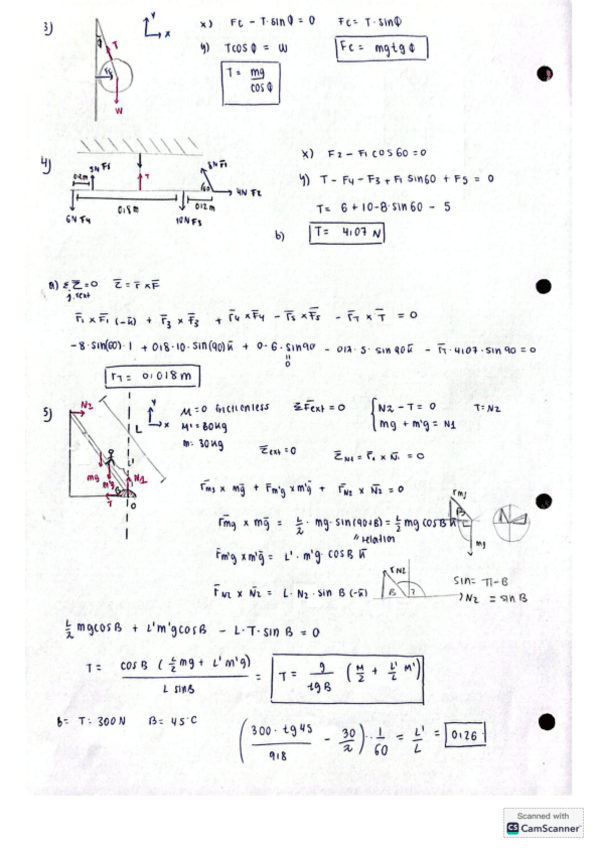 3)
Y
X
T
Fc
W
x) Fc - T·sinϕ = 0   Fc = T·sinϕ
y) Tcosϕ = W
Fc = mgtgϕ
T = mg
cosϕ
4)
3N F5
0.2m
T
8N F1
60
4N F2
0.8m
0.12m
6N F4
10N F3
x) F2 - F1 cos60 = 0
y) T - F4 - F3 + F1 sin60 + F5 = 0
T = 6 + 10 - 8·sin60 - 5
b) T = 4,07 N
r̄1 x F̄1 (-k̄) + r̄3 x F̄3 + r̄4 x F̄4 - r̄5 x F̄5 - r̄T x T̄ = 0
-8·sin(60)·1 + 0,8·10·sin(90)k̄ + 0·6·sin90 - 0,2·5·sin90k̄ - r̄T·4,07·sin90 = 0
0
rT = 0,018 m
5)
N2
Y
X
L
L'
mg
m'g
N1
T
O
M=0 frictionless
M' = 80kg
m: 30kg
ΣF̄ext = 0
N2 - T = 0
T = N2
mg + m'g = N1
r̄mg x mḡ + r̄m'g x m'ḡ + r̄N2 x N̄2 = 0
r̄mg x mḡ = L/2 · mg·sin(90+B) = L/2 mg cosB k̄
relation
r̄m'g x m'ḡ = L'·m'g·cosB k̄
r̄N2 x N̄2 = L·N2·sin B (-k̄)
rmg
B
mg
rN2
B
sin = π-B
= sinB
L/2 mgcosB + L'm'gcosB - L·T·sinB = 0
T = cosB (L/2 mg + L'm'g) / L sinB = T = g/tgB (M/2 + L'/L M')
b= T: 300N   B= 45°C
(300·tg45/9,8 - 30/2)·1/60 = L'/L = 0,26
Scanned with
CS CamScanner